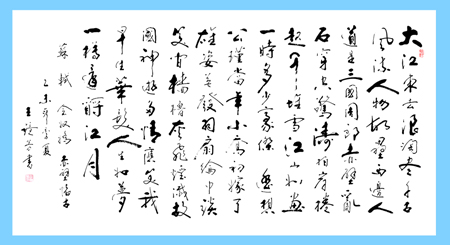 大江東去浪淘盡千古
風流人物故壘西邊人
道是三國周郎赤壁亂
石穿空驚濤拍岸捲
起千堆雪江山如畫
一時多少豪傑遙想
公瑾當年小喬初嫁了
雄姿英發羽扇綸巾談
笑間檣櫓灰飛煙滅故
國神遊多情應笑我
早生華髮人生如夢
一樽還酹江月
蘇軾 念奴嬌 赤壁懷古
乙未年孟夏
王 書